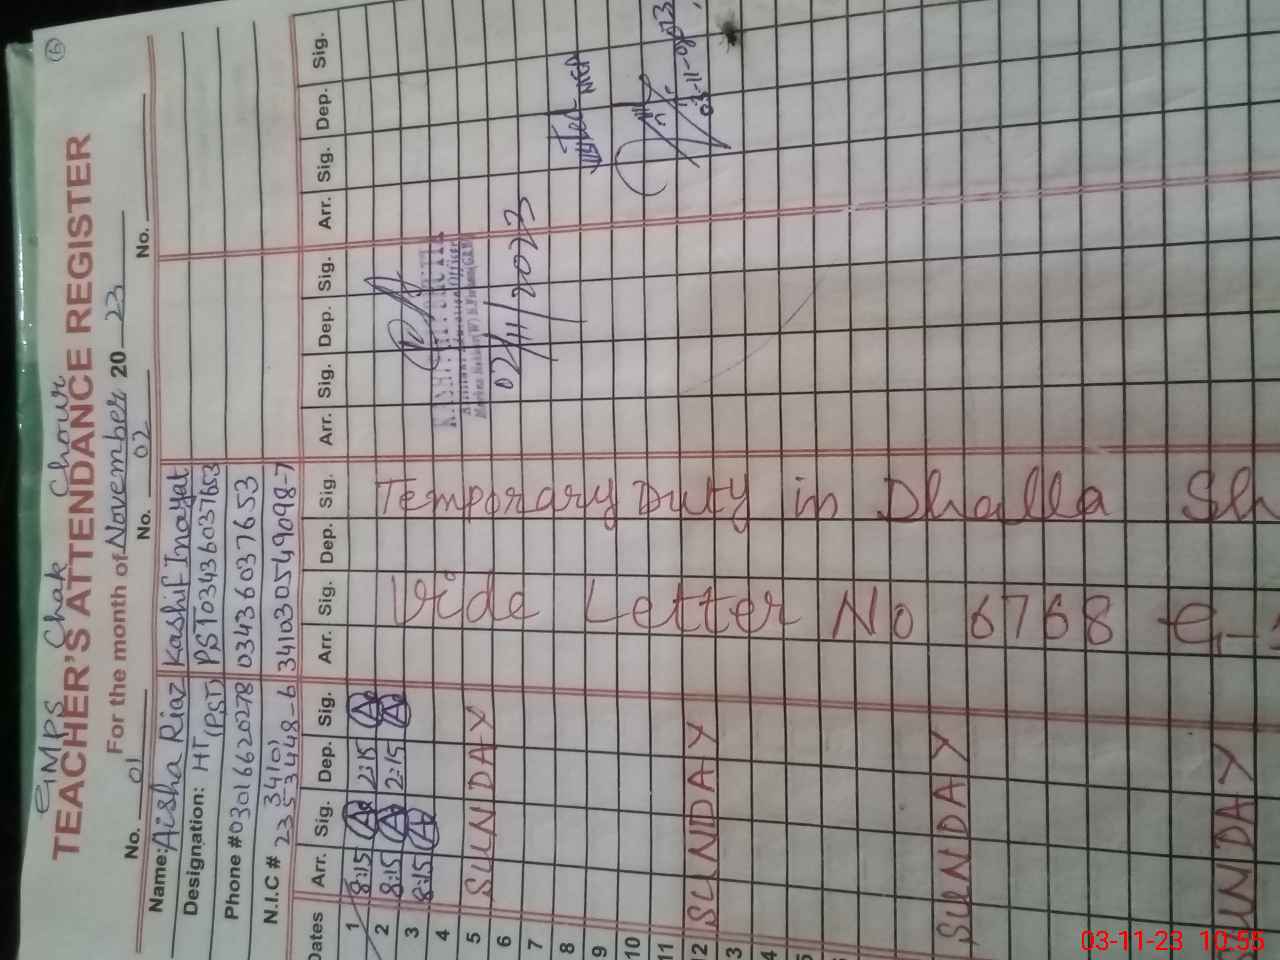 GMPS Chak Chour
TEACHER'S ATTENDANCE REGISTER
For the month of November 20 23
No. 01 No. 02 No.
Name: Aisha Riaz Kashif Inayat
Designation: HT (PST) PST03436037653
Phone # 03016620278 03436037653
N.I.C # 34101 2353448-6 341030549098-7
Dates Arr. Sig. Dep. Sig. Arr. Sig. Dep. Sig. Arr. Sig. Dep. Sig. Arr. Sig. Dep. Sig.
1 8:15 2:15
2 8:15 2:15
3 8:15
4
5 SUNDAY
6
7
8
9
10
11
12 SUNDAY
3
4
5
SUNDAY
SUNDAY
Temporary Duty in Dhalla
Vide Letter No 6768 G-
02/11/2023
Visited
03-11-2023
03-11-23 10:55